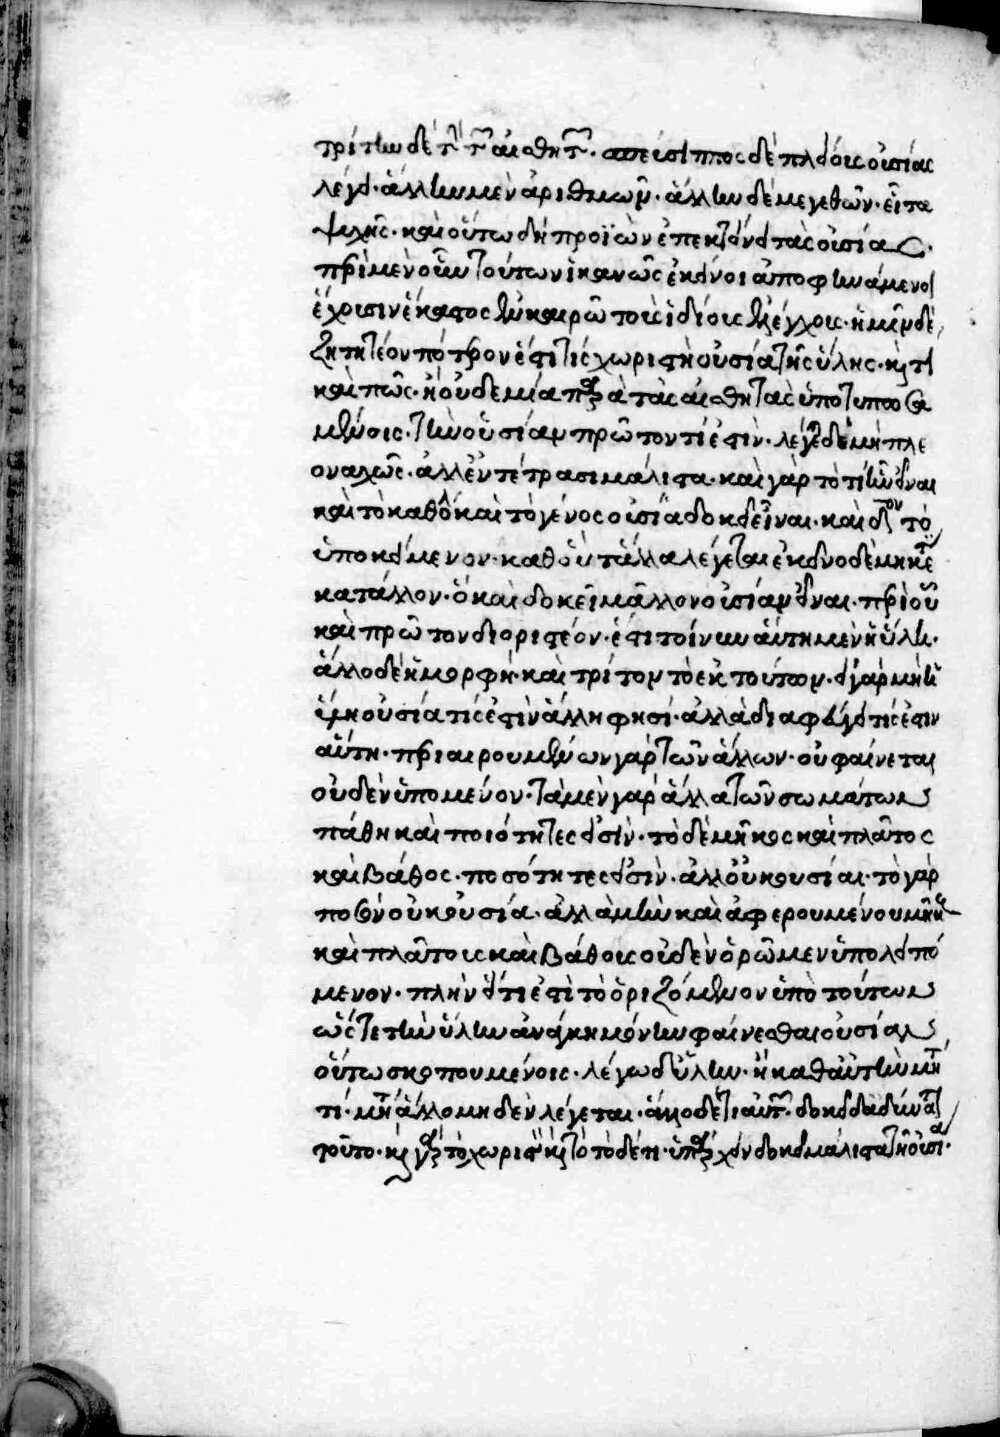 τρίτην δὲ τὴν τῶν αἰσθητῶν· σπεύσιππος δὲ πλείους οὐσίας
λέγει· ἄλλην μὲν ἀριθμῶν· ἄλλην δὲ μεγεθῶν· εἶτα
ψυχῆς· καὶ οὕτω δὴ προϊὼν ἐπεκτείνει τὰς οὐσίας·
περὶ μὲν οὖν τούτων ἱκανῶς ἐκεῖνοι ἀποφηνάμενοι
ἔχουσιν ἕκαστος ἐν καιρῷ τοὺς ἰδίους ἐλέγχους· ἡμῖν δὲ
ζητητέον πότερον ἔστι τίς χωριστὴ οὐσία τῆς ὕλης· καὶ τί
καὶ πῶς· ἢ οὐδεμία παρὰ τὰς αἰσθητὰς ὑποτυπωσα
μένοις· τὴν οὐσίαν πρῶτον τί ἐστίν· λέγεται δὲ μὴ πλε
οναχῶς· ἀλλ' ἐν τέτρασι μάλιστα· καὶ γὰρ τὸ τί ἦν εἶναι
καὶ τὸ καθόλου καὶ τὸ γένος οὐσία δοκεῖ εἶναι· καὶ τὸ
ὑποκείμενον· καθ' οὗ τἄλλα λέγεται ἐκεῖνο δὲ μηκέτι
κατ' ἄλλου· ὃ καὶ δοκεῖ μᾶλλον οὐσίαν εἶναι· περὶ οὗ
καὶ πρῶτον διοριστέον· ἔστι τοίνυν αὕτη μὲν ἡ ὕλη·
ἄλλο δὲ ἡ μορφή· καὶ τρίτον τὸ ἐκ τούτων· εἰ γὰρ μὴ ἡ
ὕλη οὐσία τίς ἐστὶν ἄλλη φησί· ἀλλὰ διαφεύγει τίς ἐστιν
αὕτη· περιαιρουμένων γὰρ τῶν ἄλλων· οὐ φαίνεται
οὐδὲν ὑπομένον· τὰ μὲν γὰρ ἄλλα τῶν σωμάτων
πάθη καὶ ποιότητες εἰσίν· τὸ δὲ μῆκος καὶ πλάτος
καὶ βάθος· ποσότητες εἰσίν· ἀλλ' οὐκ οὐσίαι· τὸ γὰρ
ποσὸν οὐκ οὐσία· ἀλλὰ μὴν καὶ ἀφαιρουμένου μήκους
καὶ πλάτους καὶ βάθους οὐδὲν ὁρῶμεν ὑπολειπό
μενον· πλὴν εἴ τι ἐστὶ τὸ ὁριζόμενον ὑπὸ τούτων
ὥστε τὴν ὕλην ἀνάγκη μόνην φαίνεσθαι οὐσίαν
οὕτω σκοπουμένοις· λέγω δ' ὕλην· ἣ καθ' αὑτὴν μήτε
τί· μήτε ἄλλο μηδὲν λέγεται· δοκεῖ δὲ ἀδύνατον
τοῦτο· καὶ γὰρ τὸ χωριστὸν καὶ τὸ τόδε τι· ὑπάρχειν δοκεῖ μάλιστα τῇ οὐσίᾳ·